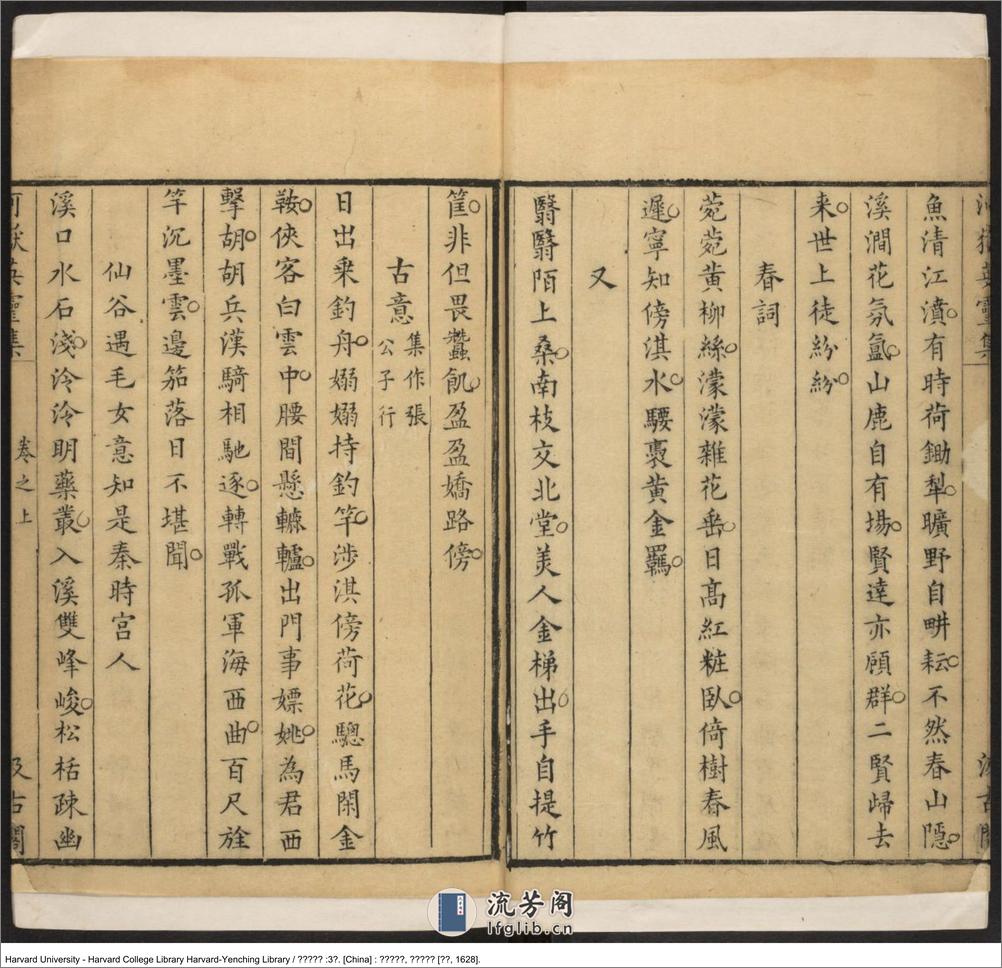 河嶽英靈集
汲古閣
魚清江濆有時荷鋤犁曠野自畊耘不然春山隱
溪澗花氛氳山鹿自有場賢達亦顧群二賢歸去
来世上徒紛紛
春詞
菀菀黃柳絲濛濛雜花垂日高紅粧臥倚樹春風
遲寧知傍淇水騕褭黃金羈
又
翳翳陌上桑南枝交北堂美人金梯出手自提竹
筐非但畏蠶飢盈盈嬌路傍
古意集作張公子行
日出乘釣舟嫋嫋持釣竿涉淇傍荷花驄馬閑金
鞍俠客白雲中腰間懸轆轤出門事嫖姚為君西
擊胡胡兵漢騎相馳逐轉戰孤軍海西曲百尺旌
竿沉墨雲邊笳落日不堪聞
仙谷遇毛女意知是秦時宮人
溪口水石淺泠泠明藥叢入溪雙峰峻松栝疎幽
河嶽英靈集
卷之上
汲古閣
流芳阁
lfglib.cn
Harvard University - Harvard College Library Harvard-Yenching Library / ????? :3?. [China] : ?????, ????? [??, 1628].